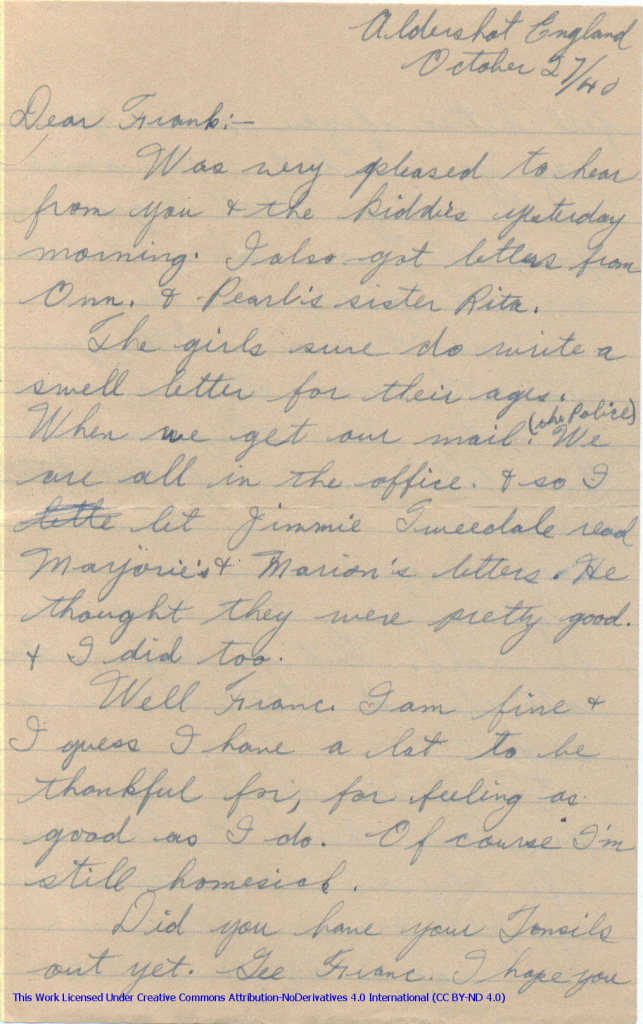 Aldershot England
October 27/40
Dear Frank:-
Was very pleased to hear
from you & the kiddies yesterday
morning. I also got letters from
Onn. & Pearl's sister Rita.
The girls sure do write a
swell letter for their ages.
(the Police)
When we get our mail. We
are all in the office. & so I
lette let Jimmie Tweedale read
Marjorie's & Marion's letters. He
thought they were pretty good.
& I did too.
Well Franc. I am fine &
I guess I have a lot to be
thankful for, for feeling as
good as I do. Of course I'm
still homesick.
Did you have your Tonsils
out yet. Gee Franc. I hope you
This Work Licensed Under Creative Commons Attribution-NoDerivatives 4.0 International (CC BY-ND 4.0)